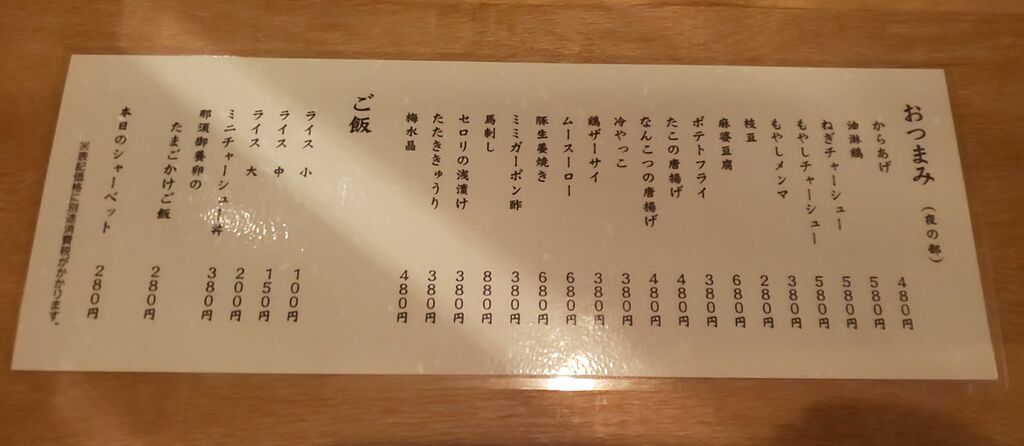 おつまみ (夜の部)
からあげ 480円
油淋鶏 580円
ねぎチャーシュー 580円
もやしチャーシュー 580円
もやしメンマ 380円
枝豆 280円
麻婆豆腐 680円
ポテトフライ 380円
たこの唐揚げ 480円
なんこつの唐揚げ 480円
冷やっこ 380円
鶏ザーサイ 380円
ムースーロー 680円
豚生姜焼き 680円
ミミガーポン酢 380円
馬刺し 880円
セロリの浅漬け 380円
たたききゅうり 380円
梅水晶 480円
ご飯
ライス 小 100円
ライス 中 150円
ライス 大 200円
ミニチャーシュー丼 380円
那須御養卵の
たまごかけご飯 280円
本日のシャーベット 280円
※表記価格に別途消費税がかかります。